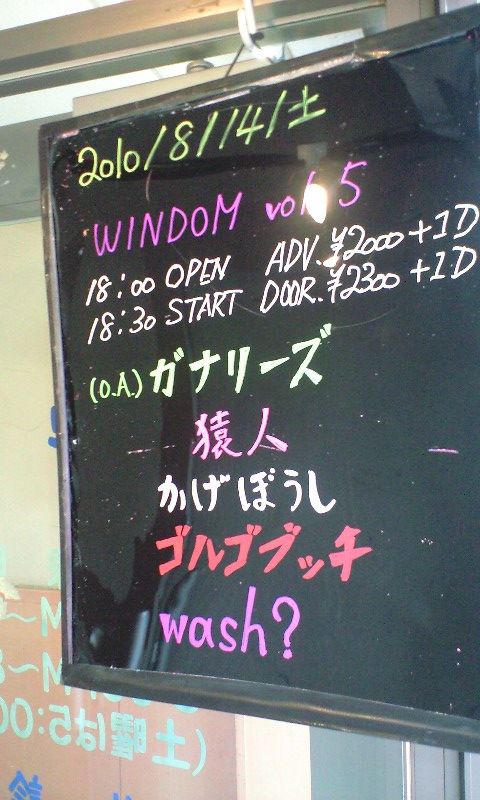 2010/8/14/土
WINDOM vol.5
18:00 OPEN ADV.¥2000+1D
18:30 START DOOR.¥2300+1D
(O.A.)ガナリーズ
猿人
かげぼうし
ゴルゴブッチ
wash?
(土曜は5:00